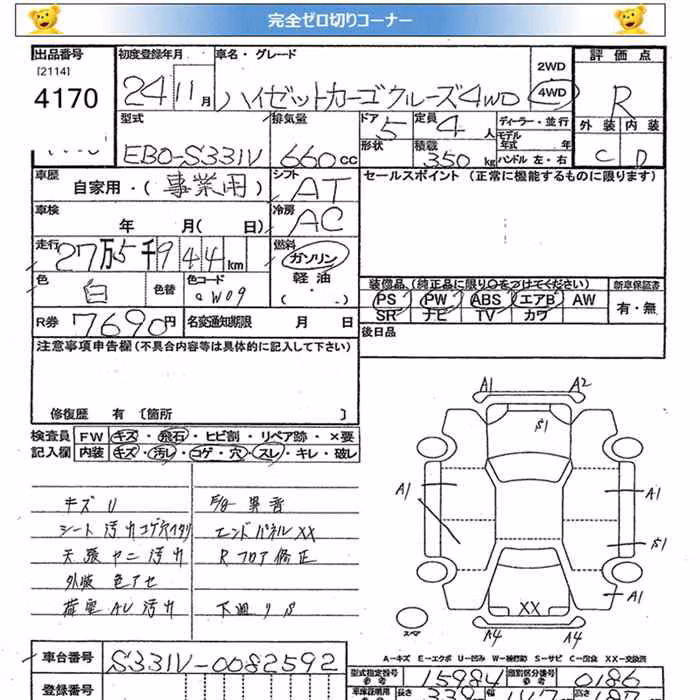 完全ゼロ切りコーナー
出品番号 初度登録年月 車名・グレード 2WD 評価点
[2114]
4170 24 11月 ハイゼットカーゴクルーズ4WD 4WD R
型式 排気量 ドア 定員 ディーラー・並行 外装 内装
5 4人 モデル年式 年
EBD-S331V 660cc 形状 積載 350kg ハンドル 左・右 C D
車歴 自家用・(事業用) シフト AT セールスポイント (正常に機能するものに限ります)
車検 年 月(日) 冷房 AC
走行 27万5千944km 燃料 ガソリン
軽油
( ・ )
色 白 色替 色コード W09
装備品(純正品に限り○をつけてください) 新車保証書
PS PW ABS エアB AW 有・無
SR ナビ TV カワ
R券 7690円 名変通知期限 月 日
後日品
注意事項申告欄(不具合内容等は具体的に記入して下さい)
修復歴 有 〔箇所 〕
検査員 FW キズ・飛石・ヒビ割・リペア跡・×要
記入欄 内装 キズ・汚レ・コゲ・穴・スレ・キレ・破レ
キズU 異音
シート 汚れコゲ穴
エンドパネルXX
天張ヤニ汚れ Rフロア修正
外販 色アセ
荷室 汚れ 下廻りS
A1 A2
S1
A1 A1
S1
A1
XX
スペア A4 A4
A－キズ E－エクボ U－凹み W－補修跡 S－サビ C－腐食 XX－交換済
車台番号 S331V-0082592
型式指定番号 15984 類別区分番号 0186
登録番号
長さ 339 幅 147